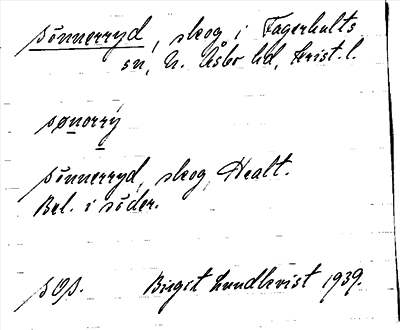 Sönnerryd, skog i Fagerhults
sn, N. Åsbo hd, Krist. l.
sønorrý
Sönnerryd, skog, Healt.
Bel. i söder.
Birgit Lundkvist 1939.